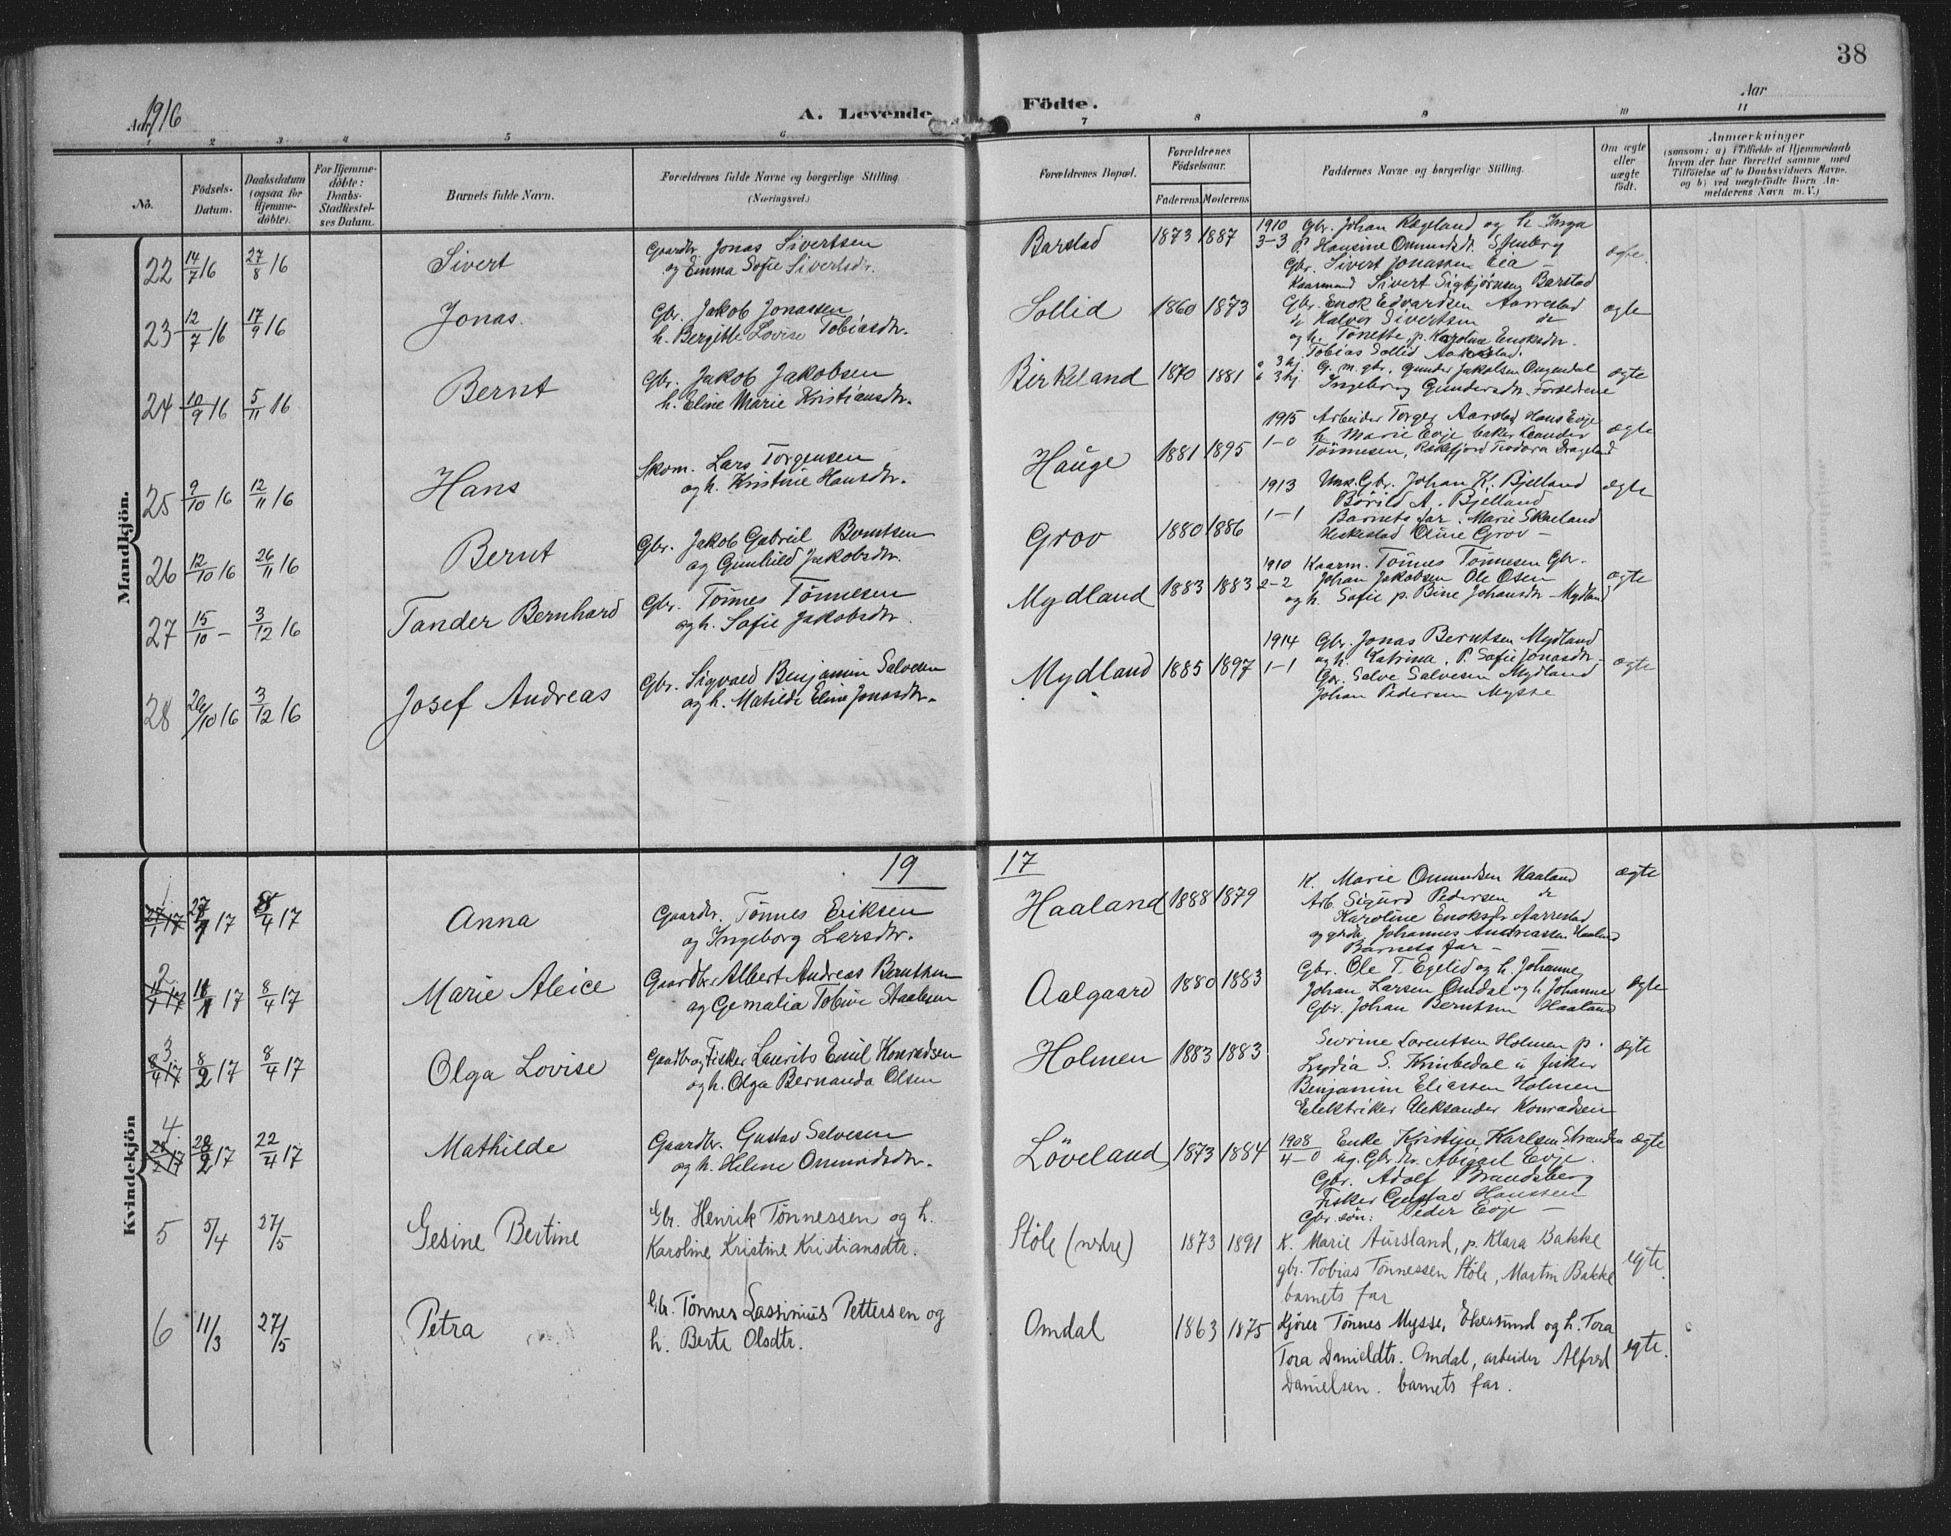 38
Aar 1916
A. Levende Födte.
Aar
1 2 3 4 5 6 7 8 9 10 11
No.
Födsels-Datum.
Daabsdatum (ogsaa for Hjemme-döbte).
For Hjemme-döbte: Daabs-Stadfæstelses Datum.
Barnets fulde Navn.
Forældrenes fulde Navne og borgerlige Stilling. (Næringsvei.)
Forældrenes Bopæl.
Forældrenes Födselsaar.
Faderens Moderens
Faddernes Navne og borgerlige Stilling.
Om ægte eller uægte födt.
Anmærkninger
(saasom: a) i Tilfælde af Hjemmedaab hvem der har forrettet samme, med Tilföielse af to Daabsvidners Navne, og b) ved uægtefödte Börn An-melderens Navn m. V.)
Mandkjön.
22 14/7 16 27/8 16 Sivert
Gaardbr. Jonas Sivertsen
og Emma Sofie Sivertsdr.
Barstad 1873 1887 1910 3-3
Gbr. Johan Rægland og h. Inga
p. Hansine Omundsdr. Stenberg
Gbr. Sivert Jonassen Eia
Kaarmand Sivert Sigbjørnsen Barstad
ægte.
23 12/7 16 17/9 16 Jonas.
Gbr. Jakob Jonassen
h. Bergitte Lovise Tobiasdr.
Sollid 1860 1873
Gbr. Enok Edvardsen Aarrestad
do Halvor Sivertsen do
og h. Tonette, p. Karoline Enoksdr.
Tobias Sollid Aarrestad.
ægte
24 10/9 16 5/11 16 Bernt
Gbr. Jakob Jakobsen
h. Eline Marie Kristiansdtr.
Birkeland 1870 1881
G. m. gbr. Gunder Jakobsen Ougendal
Ingeborg Gundersdr. Forsedrene
ægte
25 9/10 16 12/11 16 Hans
Skom. Lars Torgensen
og h. Kristine Hansdtr.
Hauge 1881 1895 1915 1-0
Arbeider Torger Aarstad Hans Evje
h. Marie Evje baker Leander
Tönnesen, Rækefjord Teodora Dragland
ægte
26 12/10 16 26/11 16 Bernt
Gbr. Jakob Gabriel Berntsen
og Gunhild Jakobsdtr.
Grov 1880 1886 1913 1-1
Uns. Gbr. Johan K. Bjelland
Börild A. Bjelland
Barnets far. Marie Skaeland
Heskestad Oline Grov -
ægte
27 15/10 - 3/12 16 Tander Bernhard
Gbr. Tönnes Tönnesen
og h. Sofie Jakobsdtr.
Mydland 1883 1883 1910 2-2
Kaarm. Tönnes Tönnesen Gbr.
Johan Jakobsen Ole Osen
og h. Sofie p. Bine Johansdtr - Mydland
ægte
28 20/10 16 3/12 16 Josef Andreas
Gbr. Sigvald Benjamin Salvesen
og h. Matilde Eline Jonasdtr.
Mydland 1885 1897 1914 1-1
Gbr. Jonas Berntsen Mydland
og h. Katrina, P. Sofie Jonasdtr.
Gbr. Salve Salvesen Mydland
Johan Pedersen Mysse
ægte
1917
Kvindekjön
1 27/1 17 8/4 17 Anna
Gaardbr. Tönnes Eriksen
og Ingeborg Larsdtr.
Haaland 1888 1879
K. Marie Omundsen Haaland
Arb. Sigurd Pedersen do
Karoline Enoksdr Aarrestad
og gbr. Johannes Andreassen Haaland
Barnets far -
ægte
2 8/4 17 Marie Aleice
Gaardbr. Albert Andreas Berntsen
og Gemalia Tobine Staalesen
Aalgaard 1880 1883
Gbr. Ole T. Egelid og h. Johanne
Johan Larsen Omdal og h. Johanne
Gbr. Johan Berntsen Haaland
ægte
3 8/2 17 8/4 17 Olga Lovise
Gaardbr og Fisker Laurits Emil Konradsen
og h. Olga Bernanda Olsen
Holmen 1883 1883
Severine Lorentsen Holmen p.
Lydia S. Knubedal u fisker
Benjamin Eliassen Holmen
Elektriker Aleksander Konradsen
ægte
4 28/2 17 22/4 17 Mathilde
Gaardbr. Gustav Salvesen
og h. Helene Omundsdtr.
Löveland 1873 1884 1908 4-0
Enke Kristine Karlsen Stranden
ug. Gbr. dr. Abigael Evje.
Gbr. Adolf Brandsberg
Fisker Gustav Hanssen
Gbr. søn. Peder Evje -
ægte
5 5/4 27/5 Gesine Bertine
Gbr. Henrik Tønnessen og h.
Karoline Kristine Kristiansdtr.
Støle (nedre) 1873 1891
K. Marie Aursland, p. Klara Bakke
gbr. Tobias Tønnessen Støle, Martin Bakke
barnets far
egte.
6 11/3 27/5 Petra
Gbr. Tønnes Lassinius Pettersen og
h. Berte Olsdtr.
Omdal 1863 1875
Kjører Tønnes Mysse, Ekersund og h. Tora
Tora Danieldtr. Omdal, arbeider Alfred
Danielsen. barnets far.
egte.